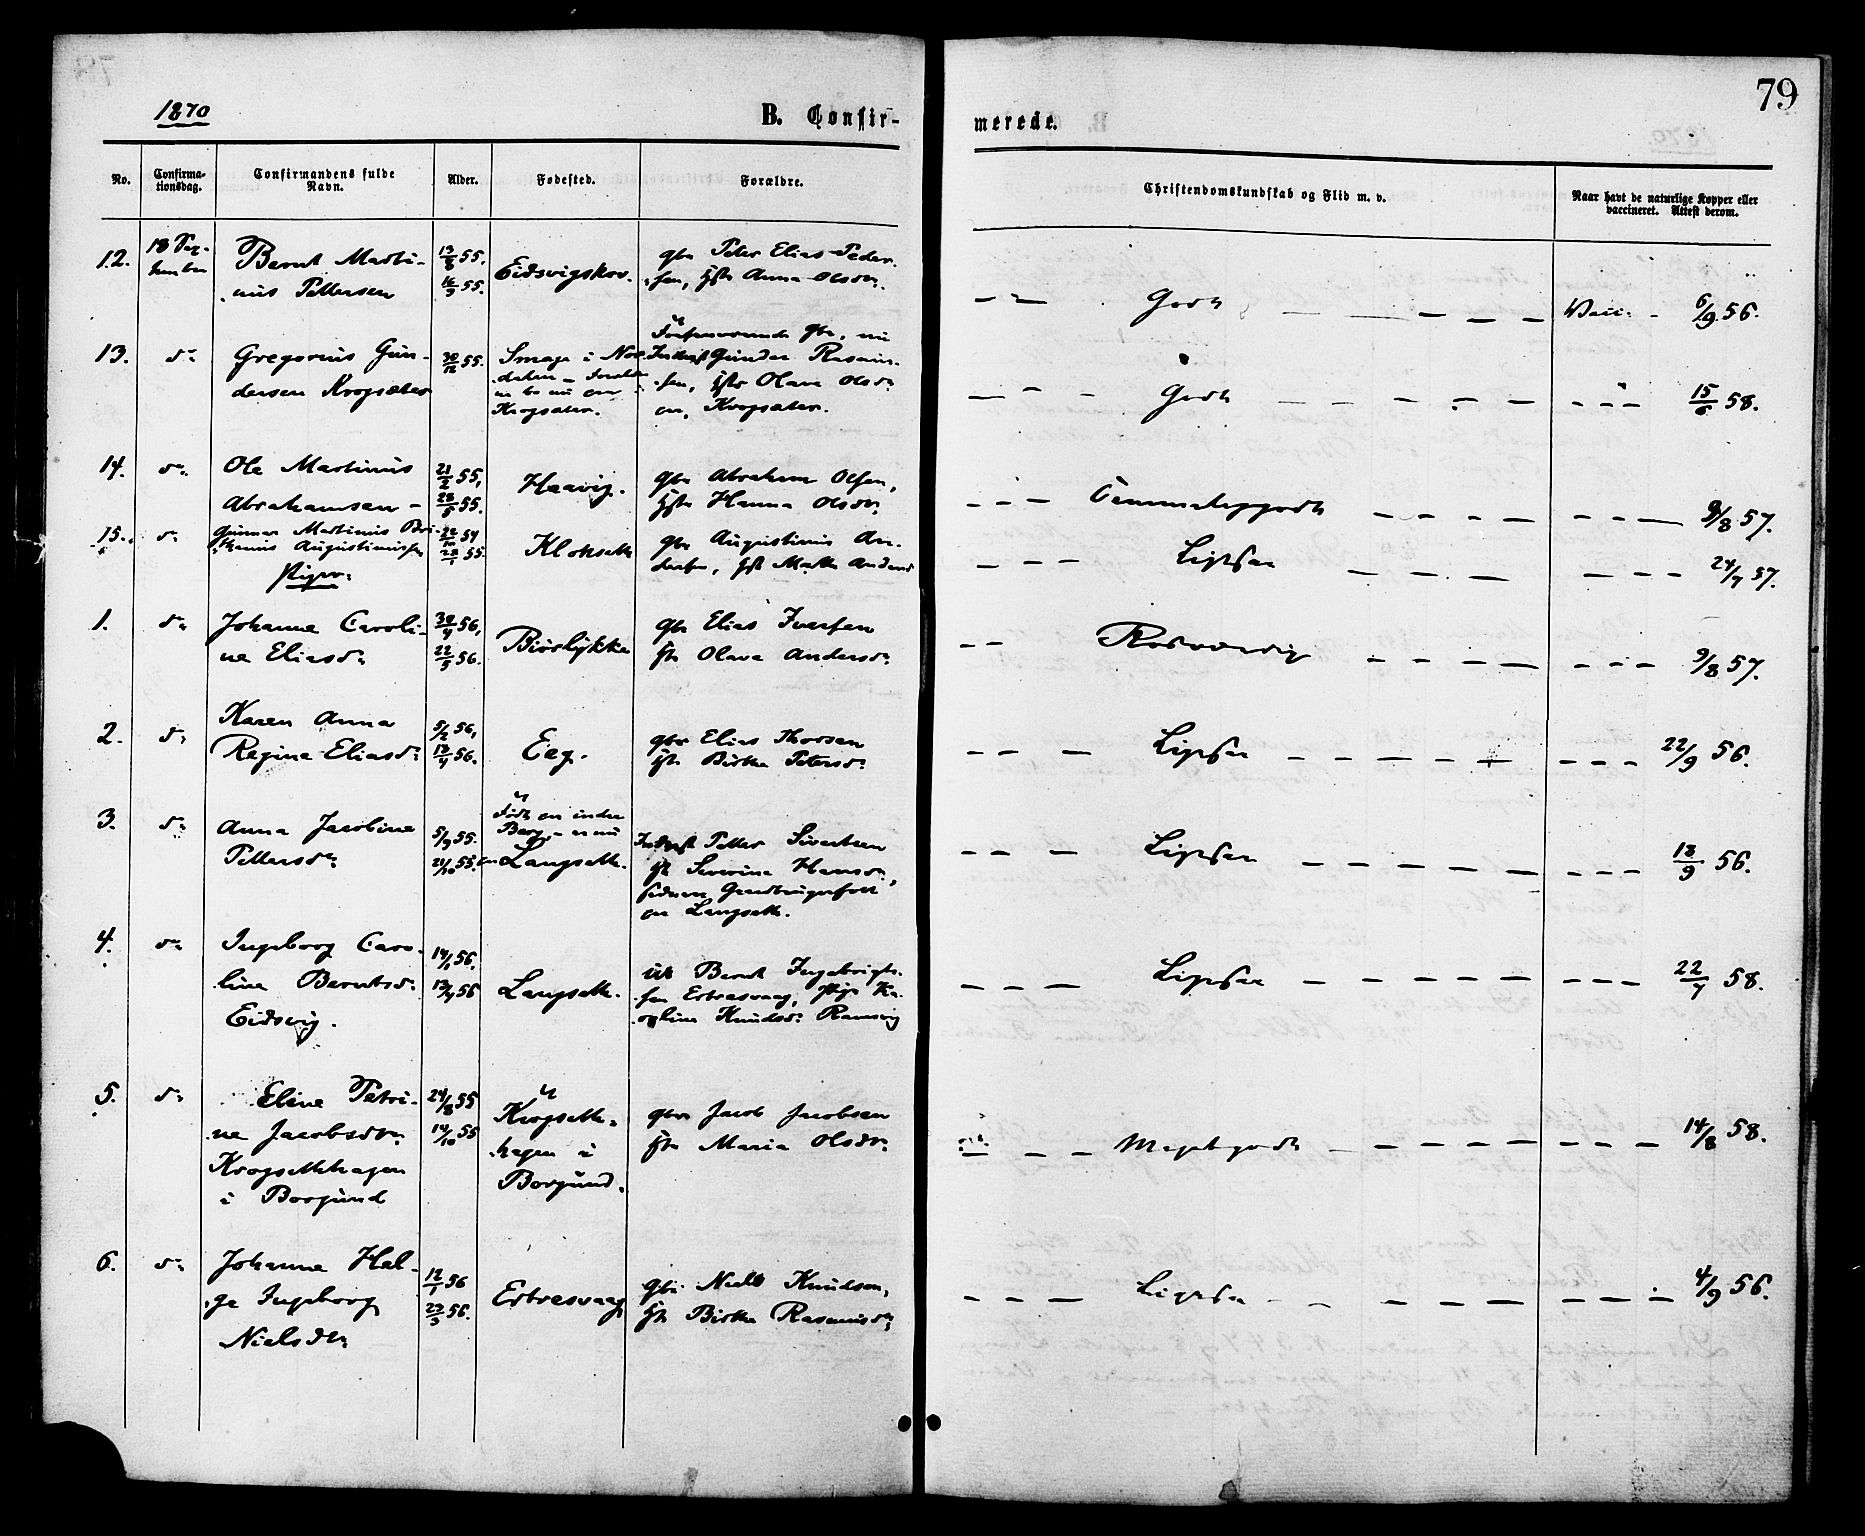 79
1870
B. Confir-
merede.
No.
Confirma-
tionsdag.
Confirmandens fulde
Navn.
Alder.
Fødested.
Forældre.
Christendomskundskab og Flid m. v.
Naar havt de naturlige Kopper eller
vaccineret. Attest derom.
12.
18 Sep-
tember
Bernt Marti-
nus Pettersen
13/8 55.
16/9 55.
Eidsvigskov.
gbr Peter Elias Peder-
sen, Anna Olsdr.
Godt
Vacc.
6/9 56.
13.
do
Gregorius Gun-
dersen Krogsæter
30/12 55.
Smage i Nor-
dalen
nu
Krogsæter.
gbr, nu
Inderst Gunder Rasmus-
sen, Olava Olsdr
Krogsæter.
Godt
15/6 58.
14.
do
Ole Martinus
Abrahamsen
21/2 55,
28/5 55.
Haavig.
gbr Abraham Olsen,
Hanna Olsdr.
Temmeliggodt
9/8 57.
15.
do
Gunnar Martinus
Augustinussen
55.
Kloksett
gbr Augustinus An-
dersen, Anders
Ligesaa
24/7 57.
Piger.
1.
do
Johanne Caroli-
ne Eliasdr
30/4 56,
22/5 56.
Biørlykke
gbr Elias Iversen
Olava Andersdr
Rosværdig
9/8 57.
2.
do
Karen Anna
Regine Eliasdr
5/2 56,
13/4 56.
Eeg.
gbr Elias Thorsen
Birthe Petersdr
Ligesaa
22/9 56.
3.
do
Anna Jacobine
Pettersdr
5/9 55.
21/10 55.
Født indre
Berg, er nu
Langsett.
Inderst Petter Sivertsen
Severine Hansdr,
Langsett.
Ligesaa
18/9 56.
4.
do
Ingeborg Caro-
line Berntsdr
Eidsvig.
14/1 56.
13/4 56
Langsett.
Bernt Ingebrigt-
sen Ertresvaag, Pige Ka-
roline Knudsdr Ramsvig
Ligesaa
22/7 58.
5.
do
Eline Petri-
ne Jacobsdr
Krogsetthagen
i Borgund
24/8 55
14/10 55
Krogsett-
hagen i
Borgund.
gbr Jacob Jacobsen
Maria Olsdr.
Megetgodt
14/8 58.
6.
do
Johanne Hel-
ge Ingeborg
Nielsdr
12/1 56
23/3 56.
Ertresvaag
gbr Niels Knudsen,
Birthe Rasmusdr
Ligesaa
4/9 56.